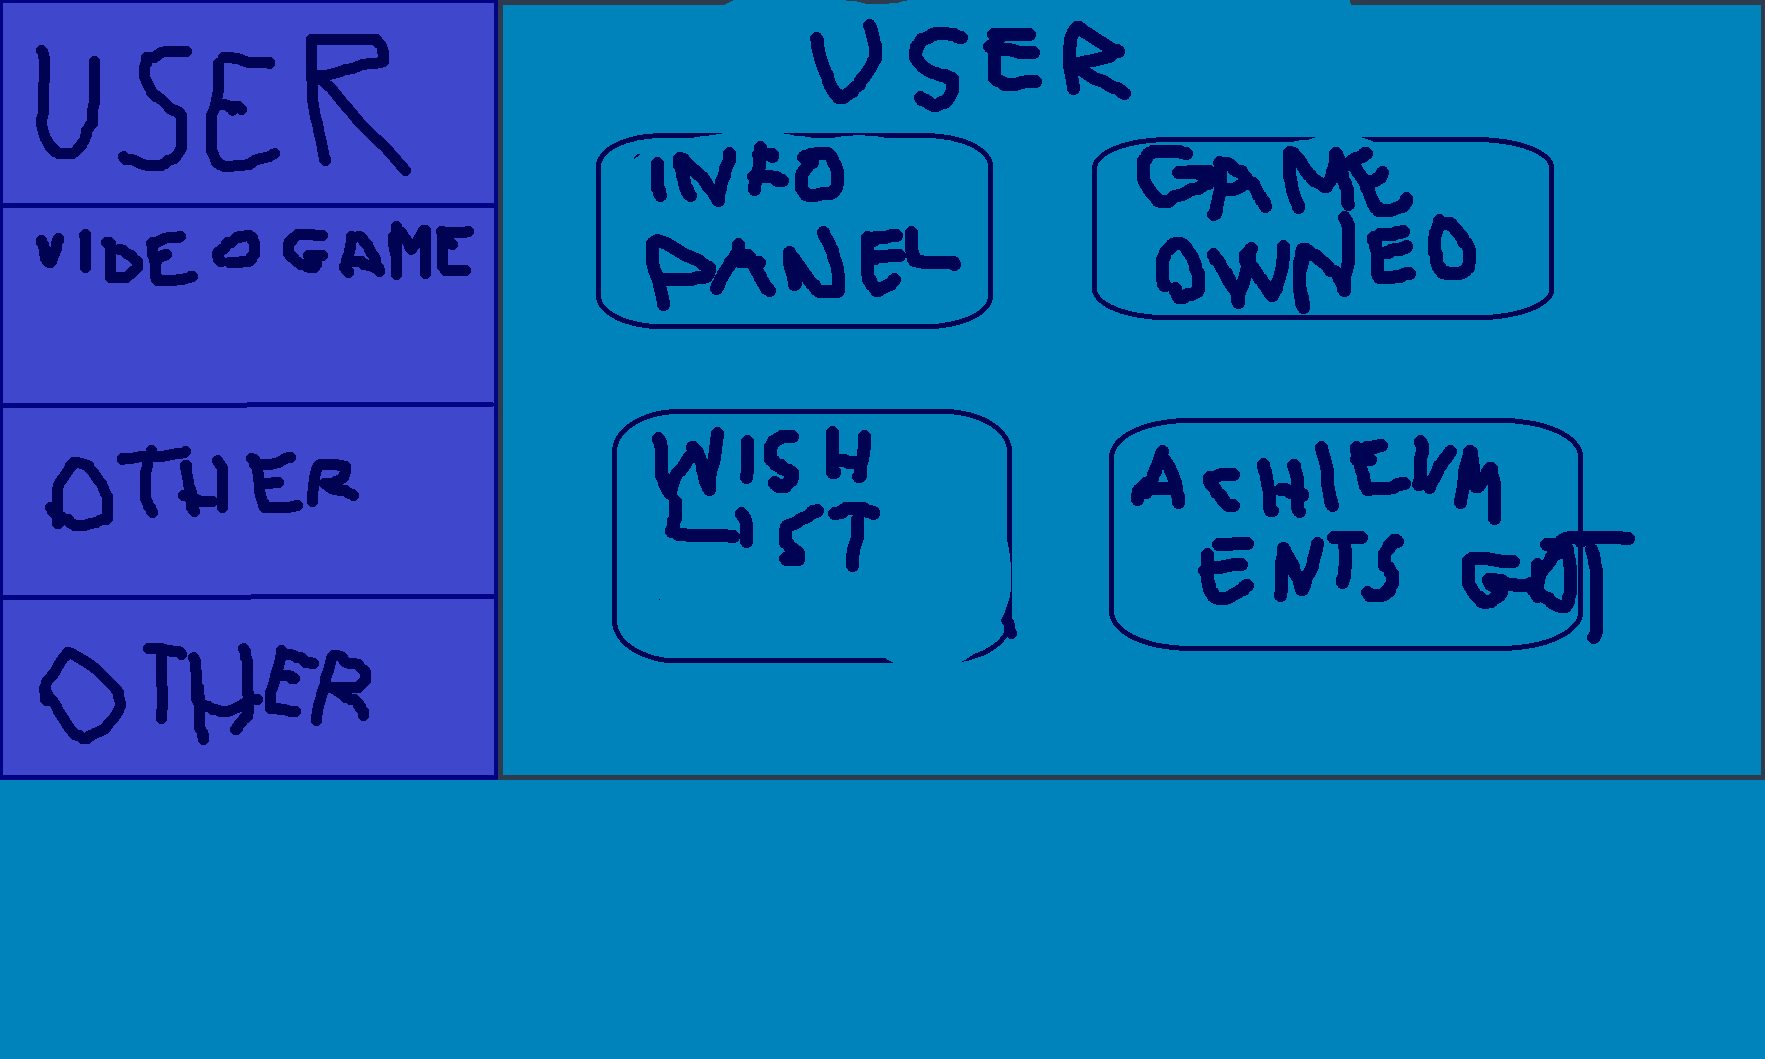 USER
VIDEOGAME
OTHER
OTHER
USER
INFO
PANEL
GAME
OWNED
WISH
LIST
ACHIEVM
ENTS GOT